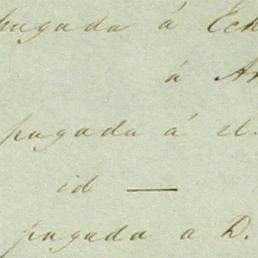 pagada á Ech
á Ar
pagada á el.
id —
pagada a D.